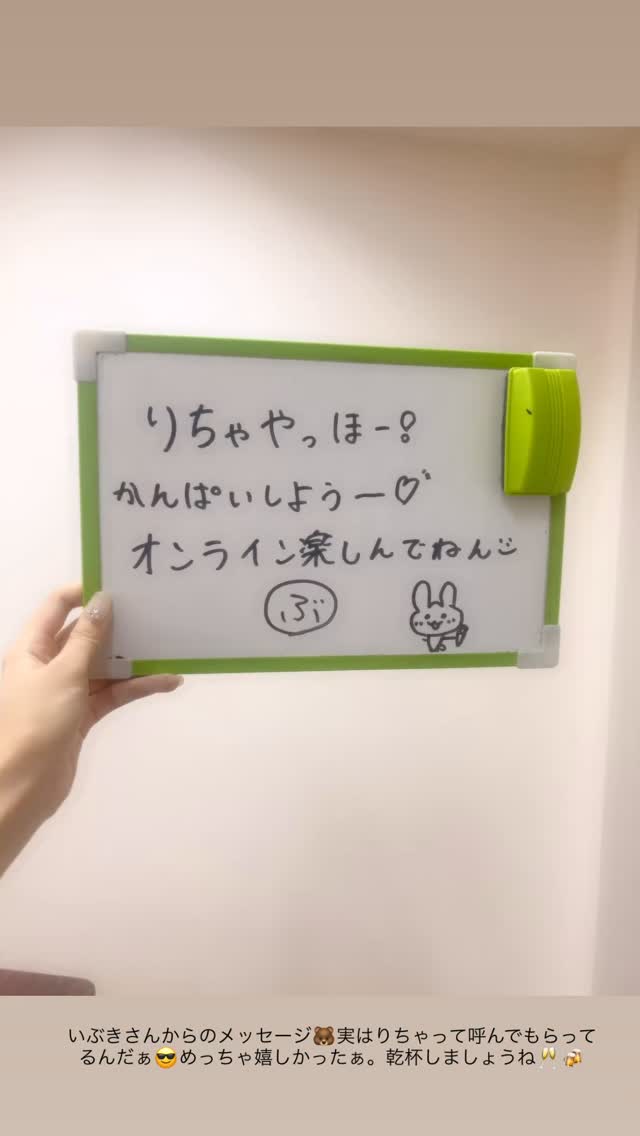 りちゃやっほー!
かんぱいしようー♡
オンライン楽しんでねん
ぶ
いぶきさんからのメッセージ🐻実はりちゃって呼んでもらって
るんだぁ😎めっちゃ嬉しかったぁ。乾杯しましょうね🥂🍻